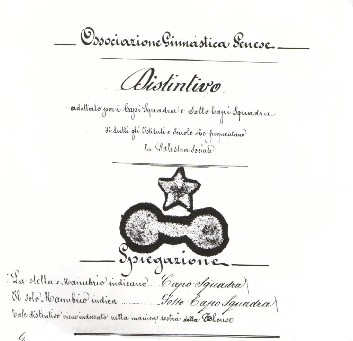 Associazione Ginnastica Senese
Distintivo
adottato per i Capi Squadra e Sotto Capi Squadra
di tutti gli Istituti e Scuole che frequentano
la Palestra Sociale
Spiegazione
La stella e Manubrio indicano Capo Squadra
Il solo Manubrio indica .......... Sotto Capo Squadra
Tale distintivo viene indossato nella manica destra della Blouse